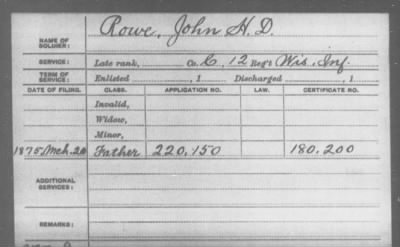 NAME OF SOLDIER: Rowe, John H. D.
SERVICE: Late rank, Co. C, 12 Reg't Wis. Inf.
TERM OF SERVICE: Enlisted , 1 Discharged , 1
DATE OF FILING. CLASS. APPLICATION NO. LAW. CERTIFICATE NO.
Invalid,
Widow,
Minor,
1875 Mch. 20 Father 220,150 180.200
ADDITIONAL SERVICES:
REMARKS: